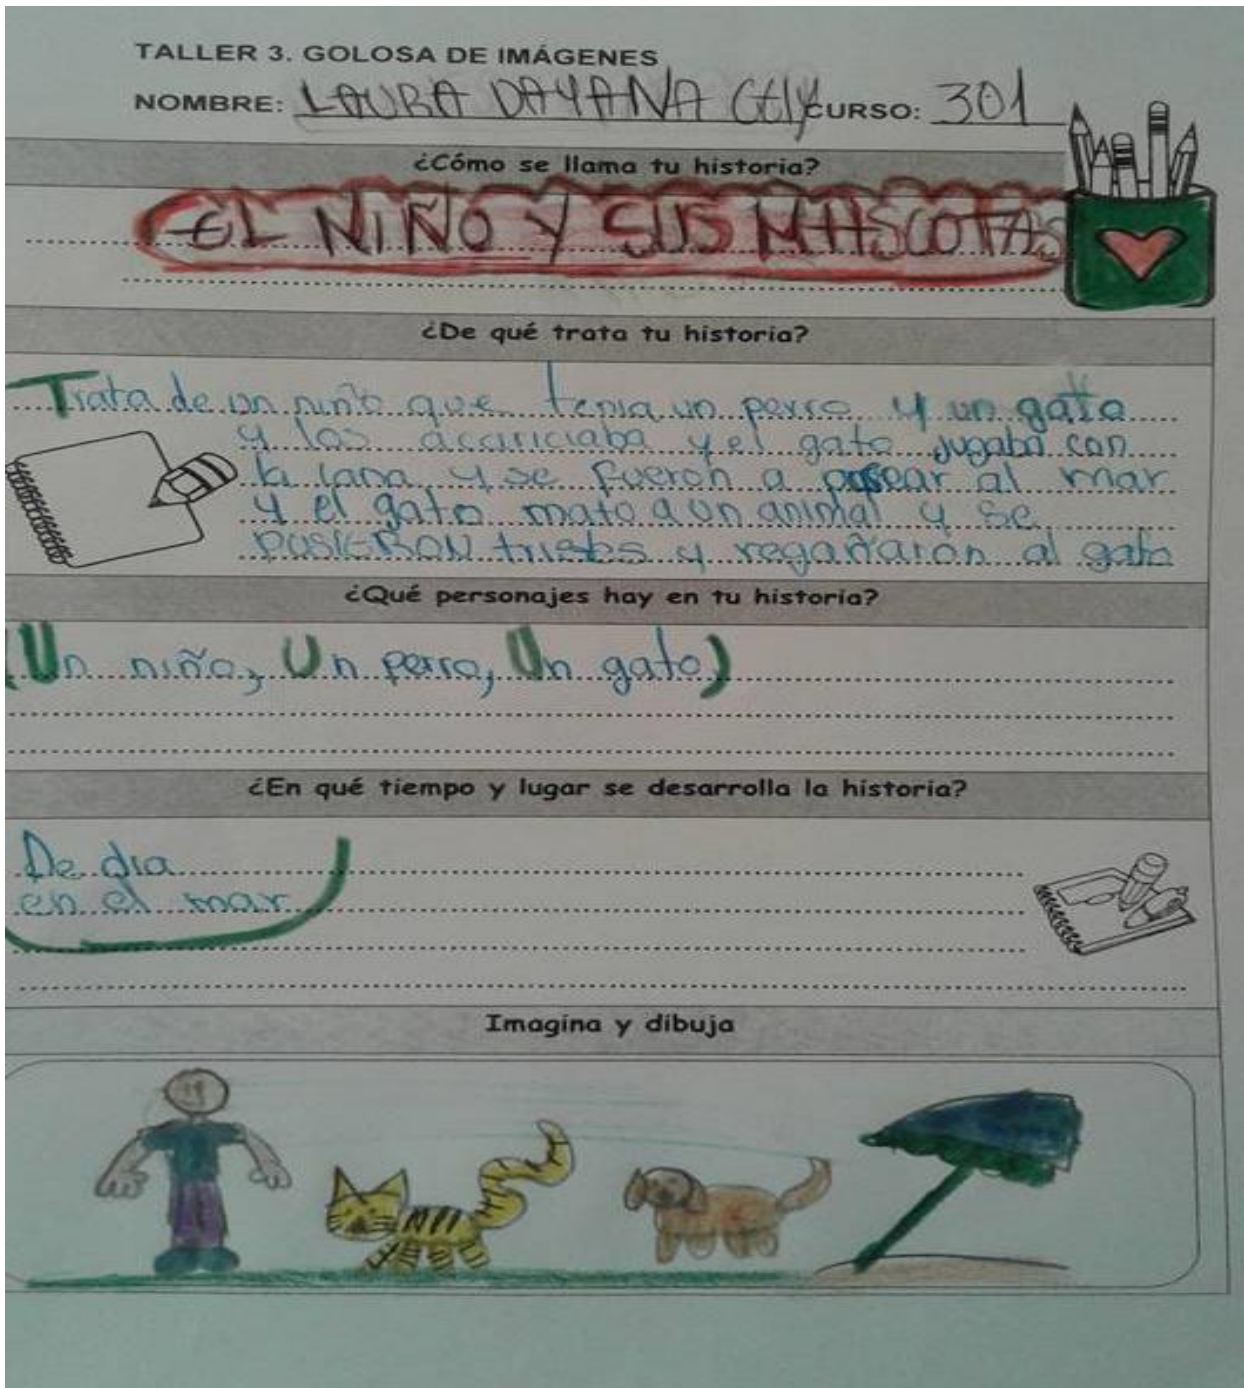 TALLER 3. GOLOSA DE IMÁGENES
NOMBRE: LAURA DAYANA Gely CURSO: 301
¿Cómo se llama tu historia?
EL NIÑO Y SUS MASCOTAS
¿De qué trata tu historia?
Trata de un niño que tenia un perro y un gato
y los acariciaba y el gato jugaba con
la lana y se fueron a pasear al mar
y el gato mato a un animal y se
pusieRON tristes y regañaron al gato
¿Qué personajes hay en tu historia?
(Un niño, Un perro, Un gato)
¿En qué tiempo y lugar se desarrolla la historia?
De dia
en el mar
Imagina y dibuja